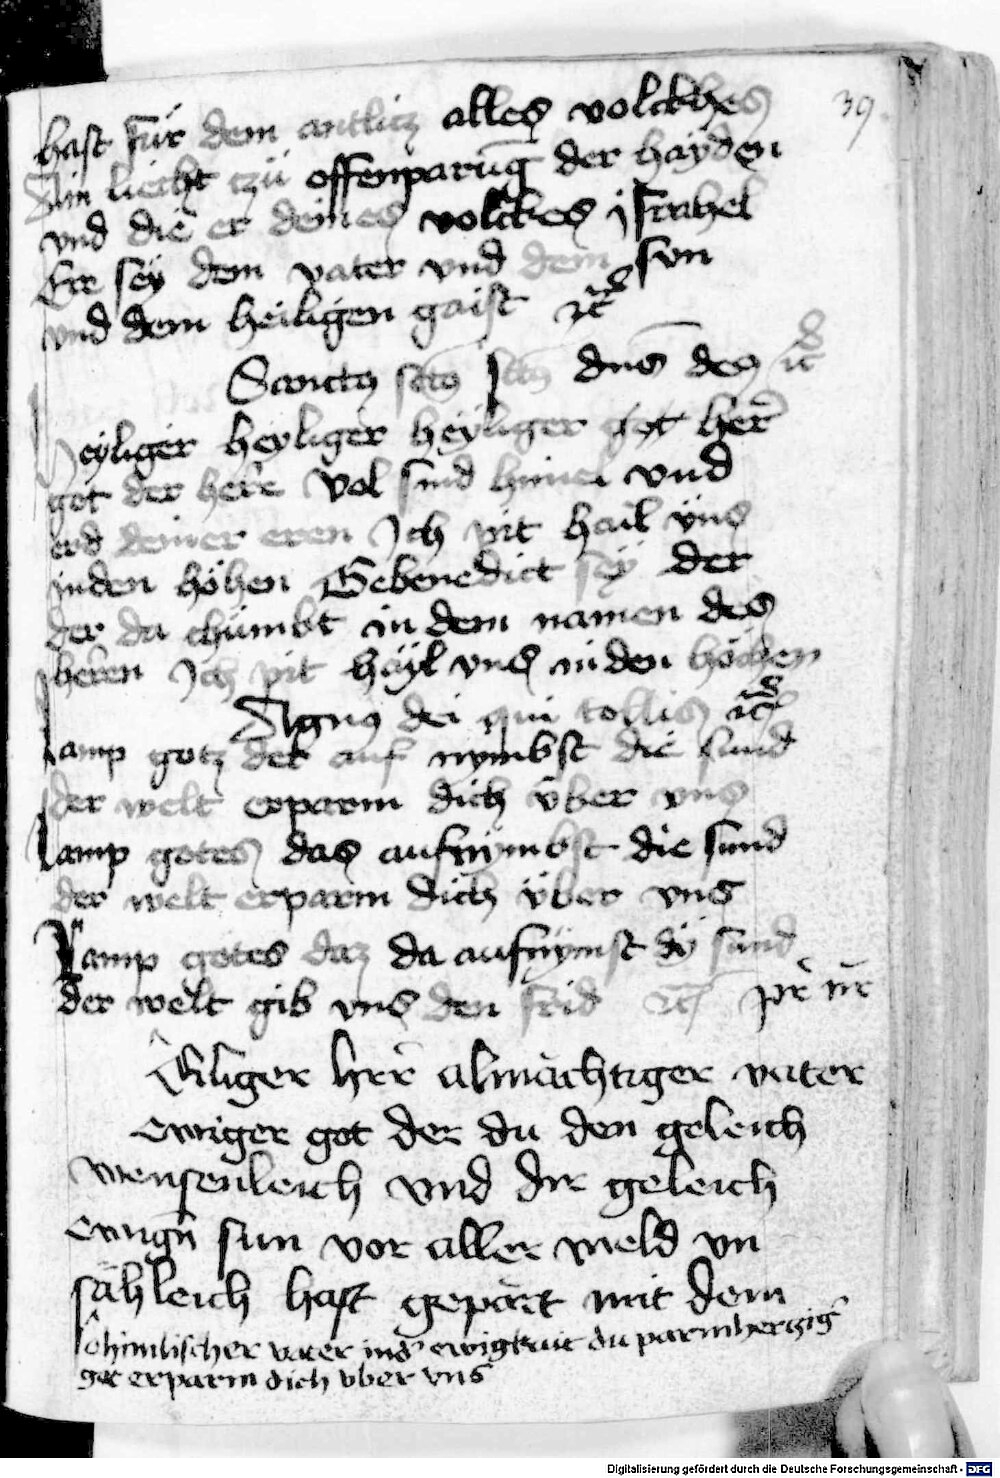 39
hast für dem antlicz alles volckhes
Ain liecht czü offenparūg der hayden
vnd die er deines volckes jsrahel
Ere sey dem vater vnd dem sun
vnd dem heiligen gaist
Sanctus dns deus
Heyliger heyliger heyliger got her
got der here vol sind himel vnd
erd deiner eren Jch pit hail vns
inden höhen Gebenedict sey der
der da chümbt in dem namen des
heren Jch pit häyl vns inden höchen
Agnus dei qui tollis
Lamp gotz der auf nymbst die sund
der welt erparm dich vber vns
lamp gotes das aufnymbst die sund
der welt erparm dich vber vns
Lamp gotes daz da aufnymst dy sund
der welt gib vns den frid pr nr
herr almächtiger vater
ewiger got der du den geleich
wensenleich vnd dir geleich
ewign sun vor aller weld vn
sähleich hast gepärt mit dem
himlischer vater ind ewigkait du parmherczig
got erparm dich vber vns
Digitalisierung gefördert durch die Deutsche Forschungsgemeinschaft - DFG